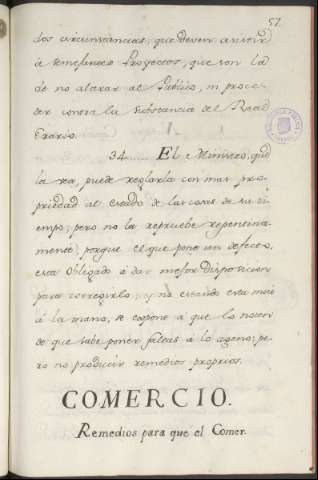 57.
dos circunstancias, que deven asistir
á semejantes Proyectos, que son la
de no atacar al Publico, ni proce-
der contra la substancia del Real
Erario.
34. El Ministro, que
la vea, puede reglarla con mas pro-
priedad al estado de las cosas de su ti-
empo; pero no la repruebe repentina-
mente, porque el que pone un defecto,
esta obligado á dar mejor disposicion
para corregirlo; y no estando esta mui
á la mano, se expone á que lo noten
de que sabe poner faltas á lo ageno; pe-
ro no producir remedios proprios.
COMERCIO.
Remedios para que el Comer-